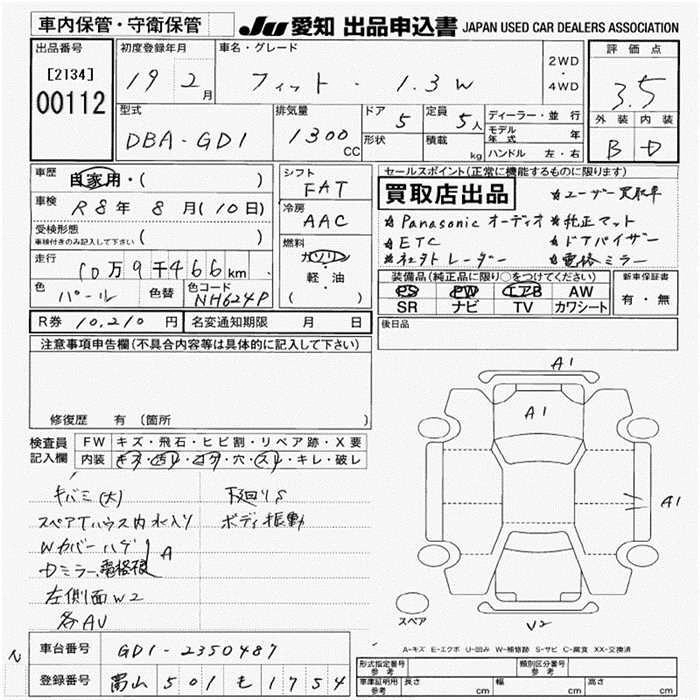 車内保管・守衛保管
JU 愛知 出品申込書 JAPAN USED CAR DEALERS ASSOCIATION
出品番号
[2134]
00112
初度登録年月
19 2月
車名・グレード
フィット・1.3W
2WD
・
4WD
評価点
3.5
外装 内装
B D
型式
DBA-GD1
排気量
1300 CC
ドア
5
定員
5人
形状
積載
kg
ディーラー・並行
モデル年式 年
ハンドル 左・右
車歴
自家用・( )
車検
R8年 8月(10日)
受検形態
車検付きのみ記入して下さい ( )
走行
10万9千466km
色
パール
色替
色コード
NH624P
シフト
FAT
冷房
AAC
燃料
ガソリン
・
軽・油
( )
セールスポイント(正常に機能するものに限ります)
買取店出品
★ユーザー買取車
★Panasonicオーディオ ★純正マット
★ETC ★ドアバイザー
★社外レーダー ★電格ミラー
装備品(純正品に限り○をつけてください)
PS PW エアB AW
SR ナビ TV カワシート
新車保証書
有・無
R券 10,210 円
名変通知期限 月 日
後日品
注意事項申告欄(不具合内容等は具体的に記入して下さい)
修復歴 有 (箇所 )
検査員記入欄
FW キズ・飛石・ヒビ割・リペア跡・X要
内装 キズ・汚レ・コゲ・穴・スレ・キレ・破レ
キバミ(大)
スペアTハウス内水入り
Wカバーハゲ
Dミラー電格 A
左側面W2
各AU
下廻りS
ボディ振動
A1
A1
A1
V2
スペア
A-キズ E-エクボ U-凹み W-補修跡 S-サビ C-腐食 XX-交換済
車台番号
GD1-2350487
登録番号
富山 501 も 1754
形式指定番号
参考
類別区分番号
参考
車庫証明用
参考
長さ cm
幅 cm
高さ cm